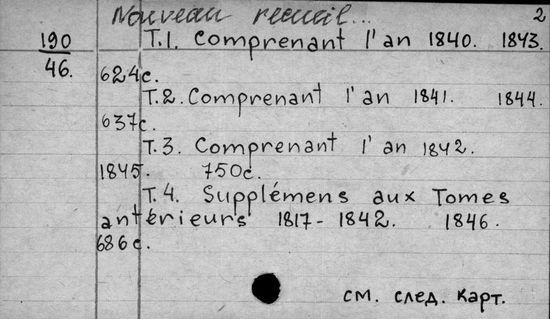 Nouveau recueil... 2
190 T.1. Comprenant l'an 1840. 1843.
46. 624с.
T.2. Comprenant l'an 1841. 1844.
637с.
T.3. Comprenant l'an 1842.
1845. 750с.
T.4. Supplémens aux Tomes
antérieurs 1817-1842. 1846.
686с.
см. след. карт.